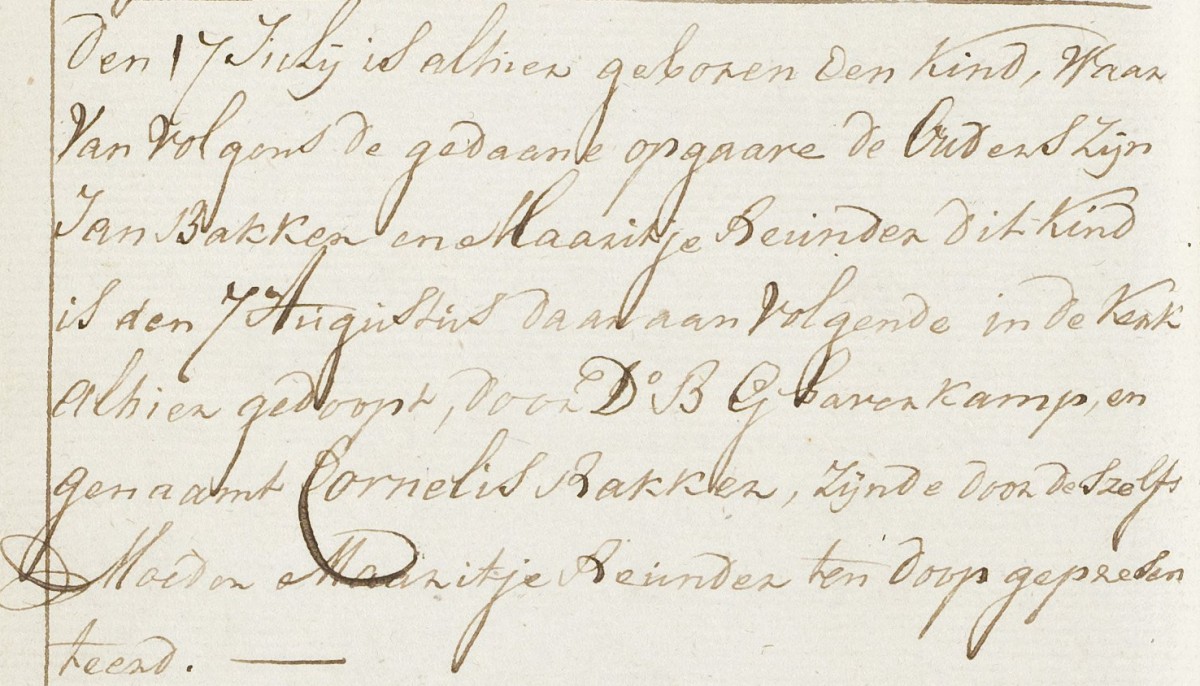 Den 17 July is alhier geboren Een Kind, Waar
Van Volgens de gedaane opgaave de Ouders Zijn
Jan Bakker en Maaritje Reinder dit Kind
is den 7 Augustus daar aan Volgende in de Kerk
Alhier gedoopt, door Do B Egbaverkamp, en
genaamt Cornelis Bakker, zijnde door deszelfs
Moeder Maaritje Reinder ten doop gepresen
teerd.